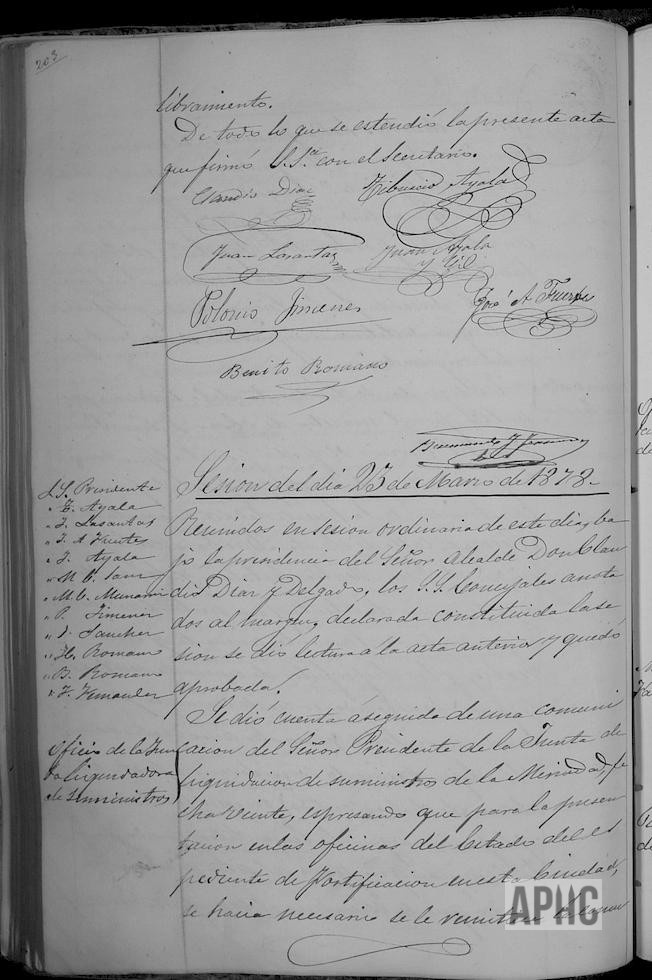 203
libramiento.
De todo lo que se estendió la presente acta
que firmó S.Sª con el Secretario.
Claudio Diaz
Tiburcio Ayala
Juan Lasantas
Juan Ayala
y Gil
Polonio Jimenez
José A Fuertes
Benito Romano
Sesion del dia 23 de Marzo de 1878.
S.S. Presidente
" T. Ayala
" J. Lasantas
" J. A Fuertes
" J. Ayala
" P. Jimenez
" J. Sanchez
" H. Romano
" B. Romano
Reunidos en sesion ordinaria de este dia, ba
jo la presidencia del Señor Alcalde Don Clau
dio Diaz y Delgado, los S.S. Concejales anota
dos al margen, declarada constituida la se
sion se dió lectura á la acta anterior y quedó
aprobada.
Oficio de la Jun
ta liquidadora
de suministros
Se dió cuenta aseguida de una comuni
cacion del Señor Presidente de la Junta de
liquidacion de suministros de la Merindad, fe
cha veinte, espresando que para la presen
tacion en las oficinas del Estado del es
pediente de Fortificacion en esta Ciudad,
se hacia necesario se le
APHC